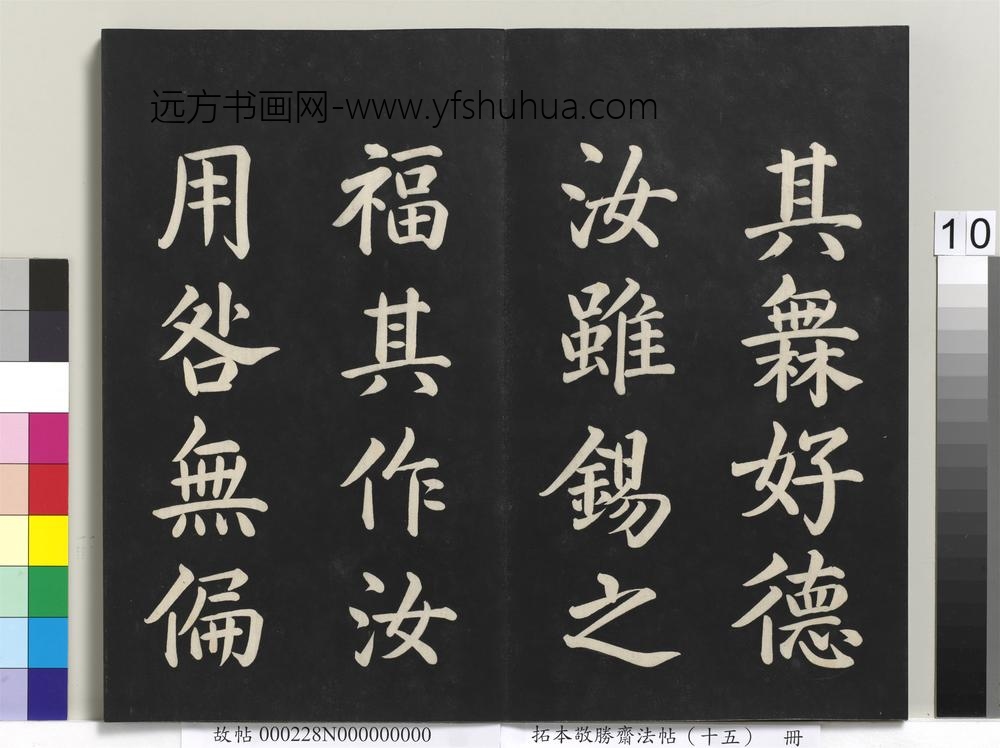 远方书画网-www.yfshuhua.com
其橆好德
汝雖錫之
福其作汝
用咎無偏
10
故帖 000228N000000000
拓本敬勝齋法帖（十五） 冊